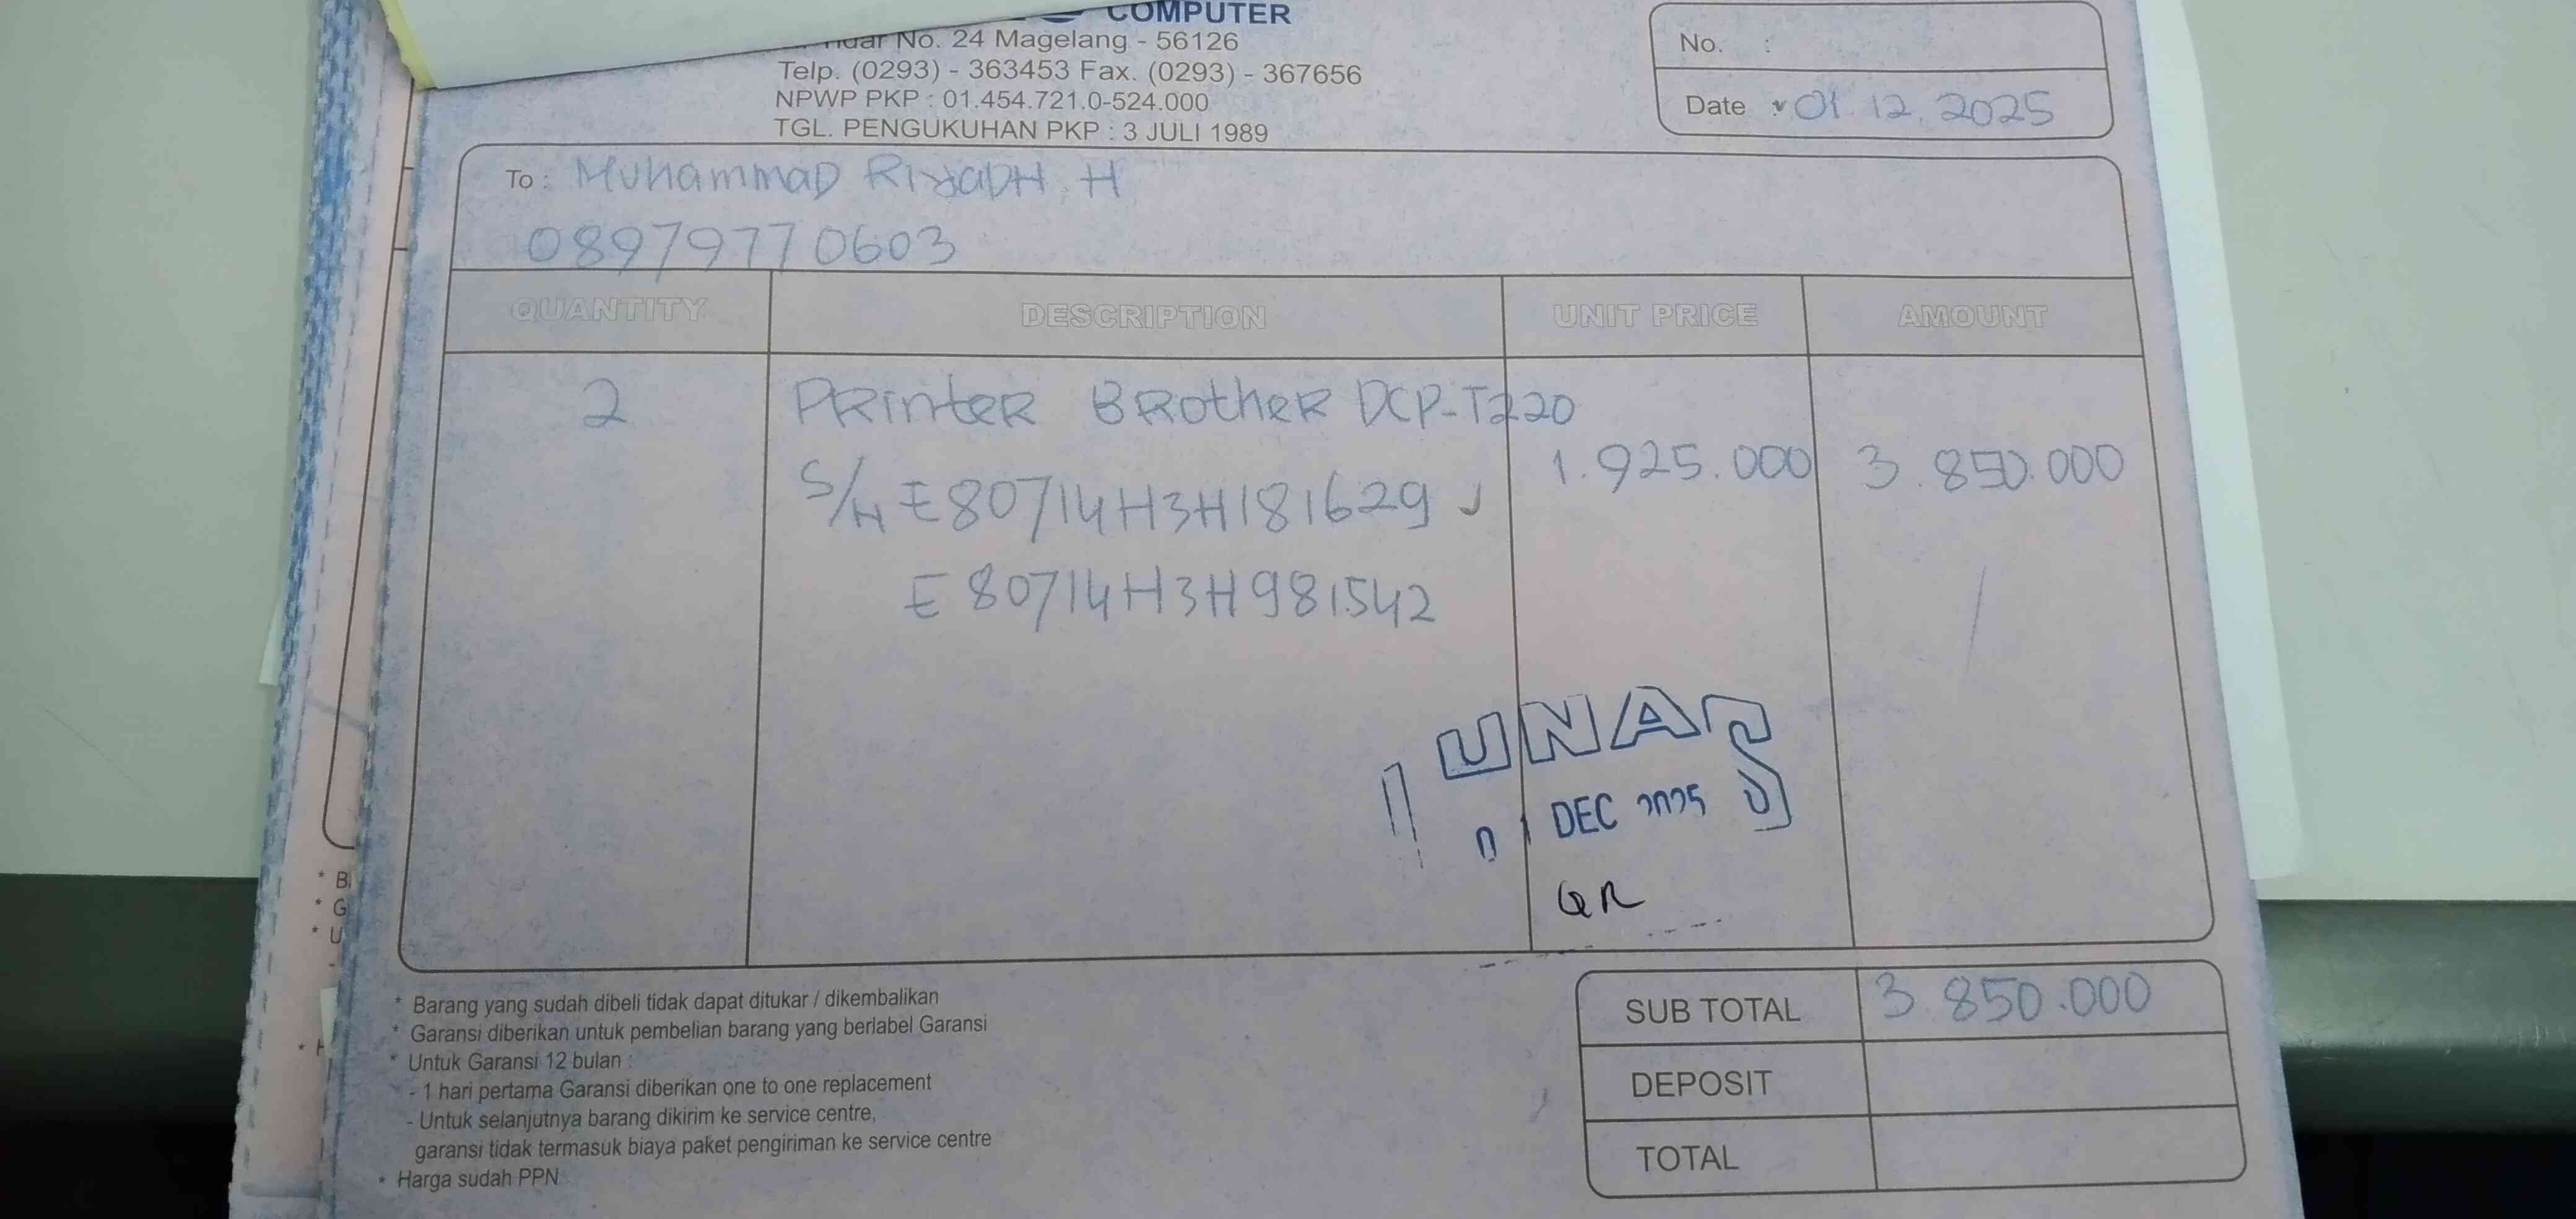 COMPUTER
No. 24 Magelang - 56126
Telp. (0293) - 363453 Fax. (0293) - 367656
NPWP PKP : 01.454.721.0-524.000
TGL. PENGUKUHAN PKP : 3 JULI 1989
No. :
Date : 01.12.2025
To : Muhammad Riyadh. H
08979770603
QUANTITY DESCRIPTION UNIT PRICE AMOUNT
2 Printer Brother DCP-T220
S/N E80714H3H181629 1.925.000 3.850.000
E80714H3H981542
LUNAS
01 DEC 2025
QR
* Barang yang sudah dibeli tidak dapat ditukar / dikembalikan
* Garansi diberikan untuk pembelian barang yang berlabel Garansi
* Untuk Garansi 12 bulan :
- 1 hari pertama Garansi diberikan one to one replacement
- Untuk selanjutnya barang dikirim ke service centre,
garansi tidak termasuk biaya paket pengiriman ke service centre
* Harga sudah PPN
SUB TOTAL 3.850.000
DEPOSIT
TOTAL